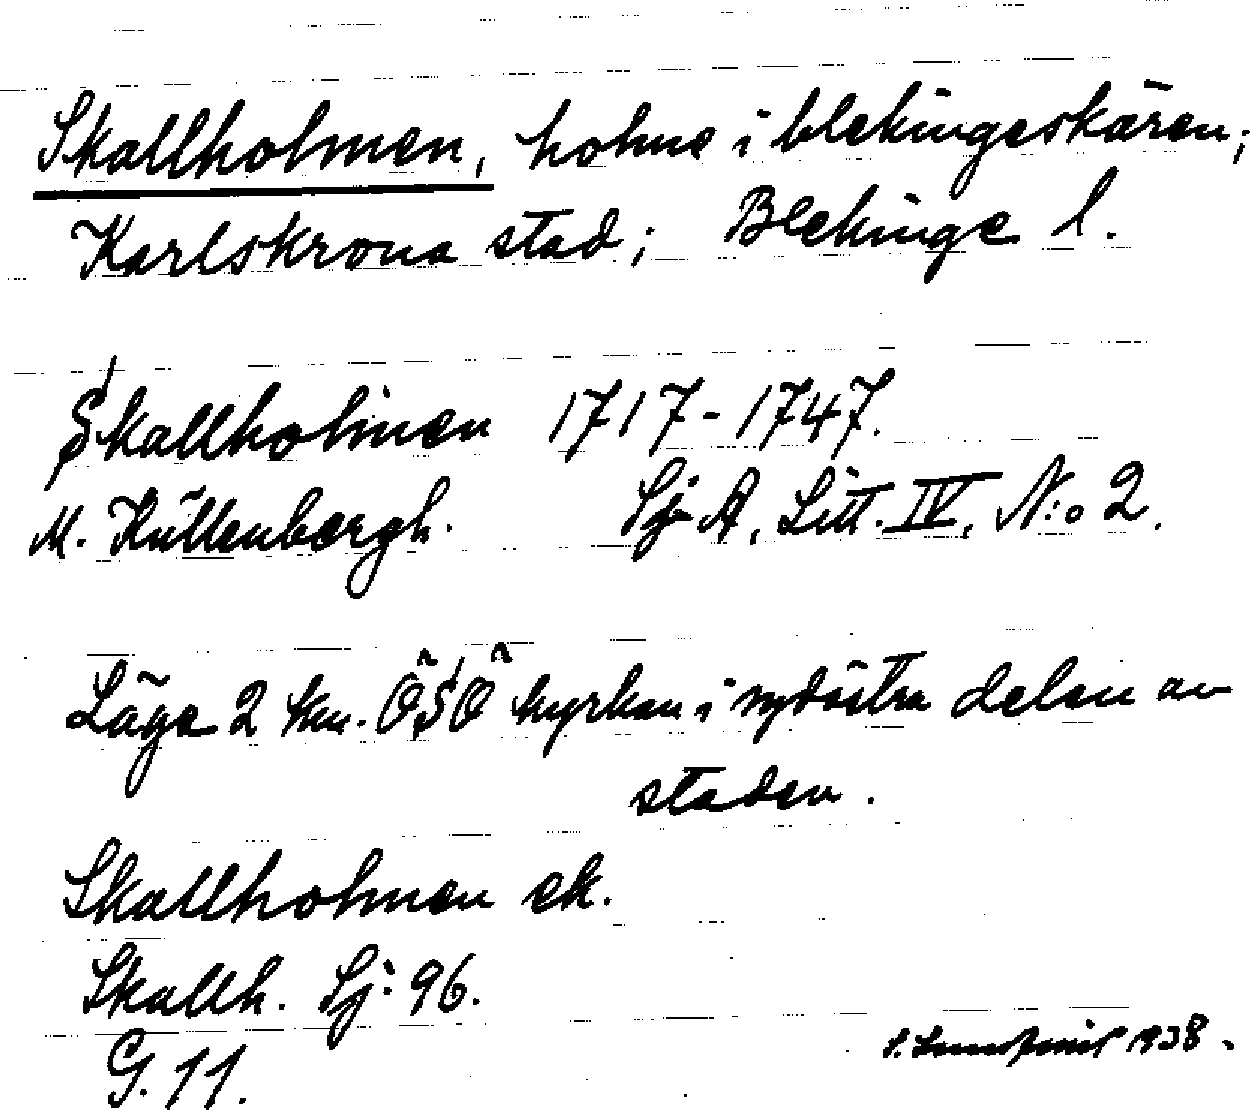 Skallholmen, holme i blekingeskären;
Karlskrona stad; Blekinge l.
Skallholmen 1717-1747.
M. Küllenbergh. Sj A, Litt. IV, N:o 2.
Läge 2 km. ÖSÖ kyrkan i sydöstra delen av
staden.
Skallholmen ek.
Skallh. Sj: 96.
G. 11.
1938.